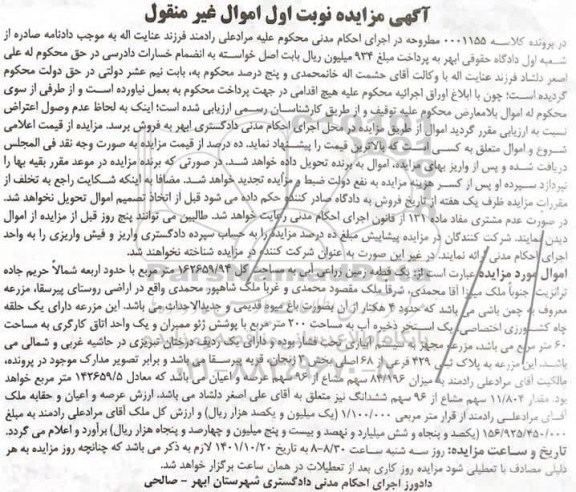 آگهی مزایده نوبت اول اموال غیر منقول
در پرونده کلاسه ۰۰۰۱۱۵۵ مطروحه در اجرای احکام مدنی محکوم علیه مرادعلی رادمند فرزند عنایت اله به موجب دادنامه صادره از
شعبه اول دادگاه حقوقی ابهر به پرداخت مبلغ ۹۳۴ میلیون ریال بابت اصل خواسته به انضمام خسارات دادرسی در حق محکوم له علی
اصغر دلشاد فرزند عنایت اله با وکالت آقای حشمت اله خانمحمدی و پنج درصد محکوم به، بابت نیم عشر دولتی در حق دولت محکوم
گردیده است؛ چون با ابلاغ اوراق اجرائیه محکوم علیه هیچ اقدامی در جهت پرداخت محکوم به بعمل نیاورده است و از طرفی از سوی
محکوم له اموال بلامعارض محکوم علیه توقیف و از طریق کارشناسان رسمی ارزیابی شده است؛ اینک به لحاظ عدم وصول اعتراض
نسبت به ارزیابی مقرر گردید اموال از طریق مزایده در محل اجرای احکام مدنی دادگستری ابهر به فروش برسد. مزایده از قیمت اعلامی
شروع و اموال متعلق به کسی است که بالاترین قیمت را پیشنهاد نماید. ده درصد از قیمت مزایده به صورت وجه نقد فی المجلس
دریافت شده و پس از واریز بهای مزایده، اموال به برنده تحویل داده خواهد شد. در صورتی که برنده مزایده در موعد مقرر بقیه بها را
نپردازد سپرده او پس از کسر هزینه مزایده به نفع دولت ضبط و مزایده تجدید خواهد شد. مضافا به اینکه شکایت راجع به تخلف از
مقررات مزایده ظرف یک هفته از تاریخ فروش به دادگاه صادر کننده حکم داده می شود قبل از اتخاذ تصمیم اموال تحویل نخواهد شد.
در صورت عدم مشتری مفاد ماده ۱۳۱ از قانون اجرای احکام مدنی رعایت خواهد شد. طالبین می توانند پنج روز قبل از مزایده از اموال
دیدن نمایند. شرکت کنندگان در مزایده پیشاپیش مبلغ ده درصد مزایده را به حساب سپرده دادگستری واریز و فیش واریزی را به واحد
اجرای احکام مدنی ارائه نمایند. در غیر این صورت به عنوان شرکت کننده در مزایده شناخته نخواهند شد.
اموال مورد مزایده عبارت است از: یک قطعه زمین زراعی آبی به مساحت کل ۱۶۲۶۵۹/۹۴ متر مربع با حدود اربعه شمالاً حریم جاده
ترانزیت، جنوباً ملک میرزا آقا محمدی، شرقاً ملک مقصود محمدی و غرباً ملک شاهپور محمدی واقع در اراضی روستای پیرسقا، مزرعه
معروف به چمن باشی می باشد که حدود ۴ هکتار از آن بصورت باغ میوه قدیمی و جدیدالاحداث می باشد. این مزرعه دارای یک حلقه
چاه کشاورزی اختصاصی، یک استخر ذخیره آب به مساحت ۲۰۰ متر مربع با پوشش ژئو ممبران و یک واحد اتاق کارگری به مساحت
۶۰ متر مربع می باشد، مزرعه مجهز به سیستم آبیاری تحت فشار بوده و دارای یک ردیف درختان تبریزی در حاشیه غربی و شمالی می
باشد. این مزرعه به پلاک ثبتی ۴۲۹ فرعی از ۶۸ اصلی بخش ۹ زنجان، قریه پیرسقا می باشد و برابر تصویر مدارک موجود در پرونده،
مالکیت آقای مرادعلی رادمند به میزان ۸۴/۱۹۶ سهم مشاع از ۹۶ سهم عرصه و اعیان می باشد که معادل ۱۴۲۶۵۹/۵ متر مربع خواهد
بود. مقدار ۱۱/۸۰۴ سهم مشاع از ۹۶ سهم ششدانگ نیز متعلق به آقای علی اصغر دلشاد می باشد. ارزش عرصه و اعیان و حقابه ملک
آقای مرادعلی رادمند از قرار متر مربعی ۱/۱۰۰/۰۰۰ (یک میلیون و یکصد هزار ریال) و ارزش کل ملک آقای مرادعلی رادمند به مبلغ
۱۵۶/۹۲۵/۴۵۰/۰۰۰ (یکصد و پنجاه و شش میلیارد و نهصد و بیست و پنج میلیون و چهارصد و پنجاه هزار ریال) برآورد و اعلام می گردد.
تاریخ و ساعت مزایده: روز سه شنبه ساعت ۸/۳۰-۸ به تاریخ ۱۴۰۱/۱۰/۲۰ لازم به ذکر می باشد که چنانچه روز مزایده به هر
دلیلی مصادف با تعطیلی شود مزایده روز کاری بعد از تعطیلات در همان ساعت برگزار خواهد شد.
دادورز اجرای احکام مدنی دادگستری شهرستان ابهر - صالحی